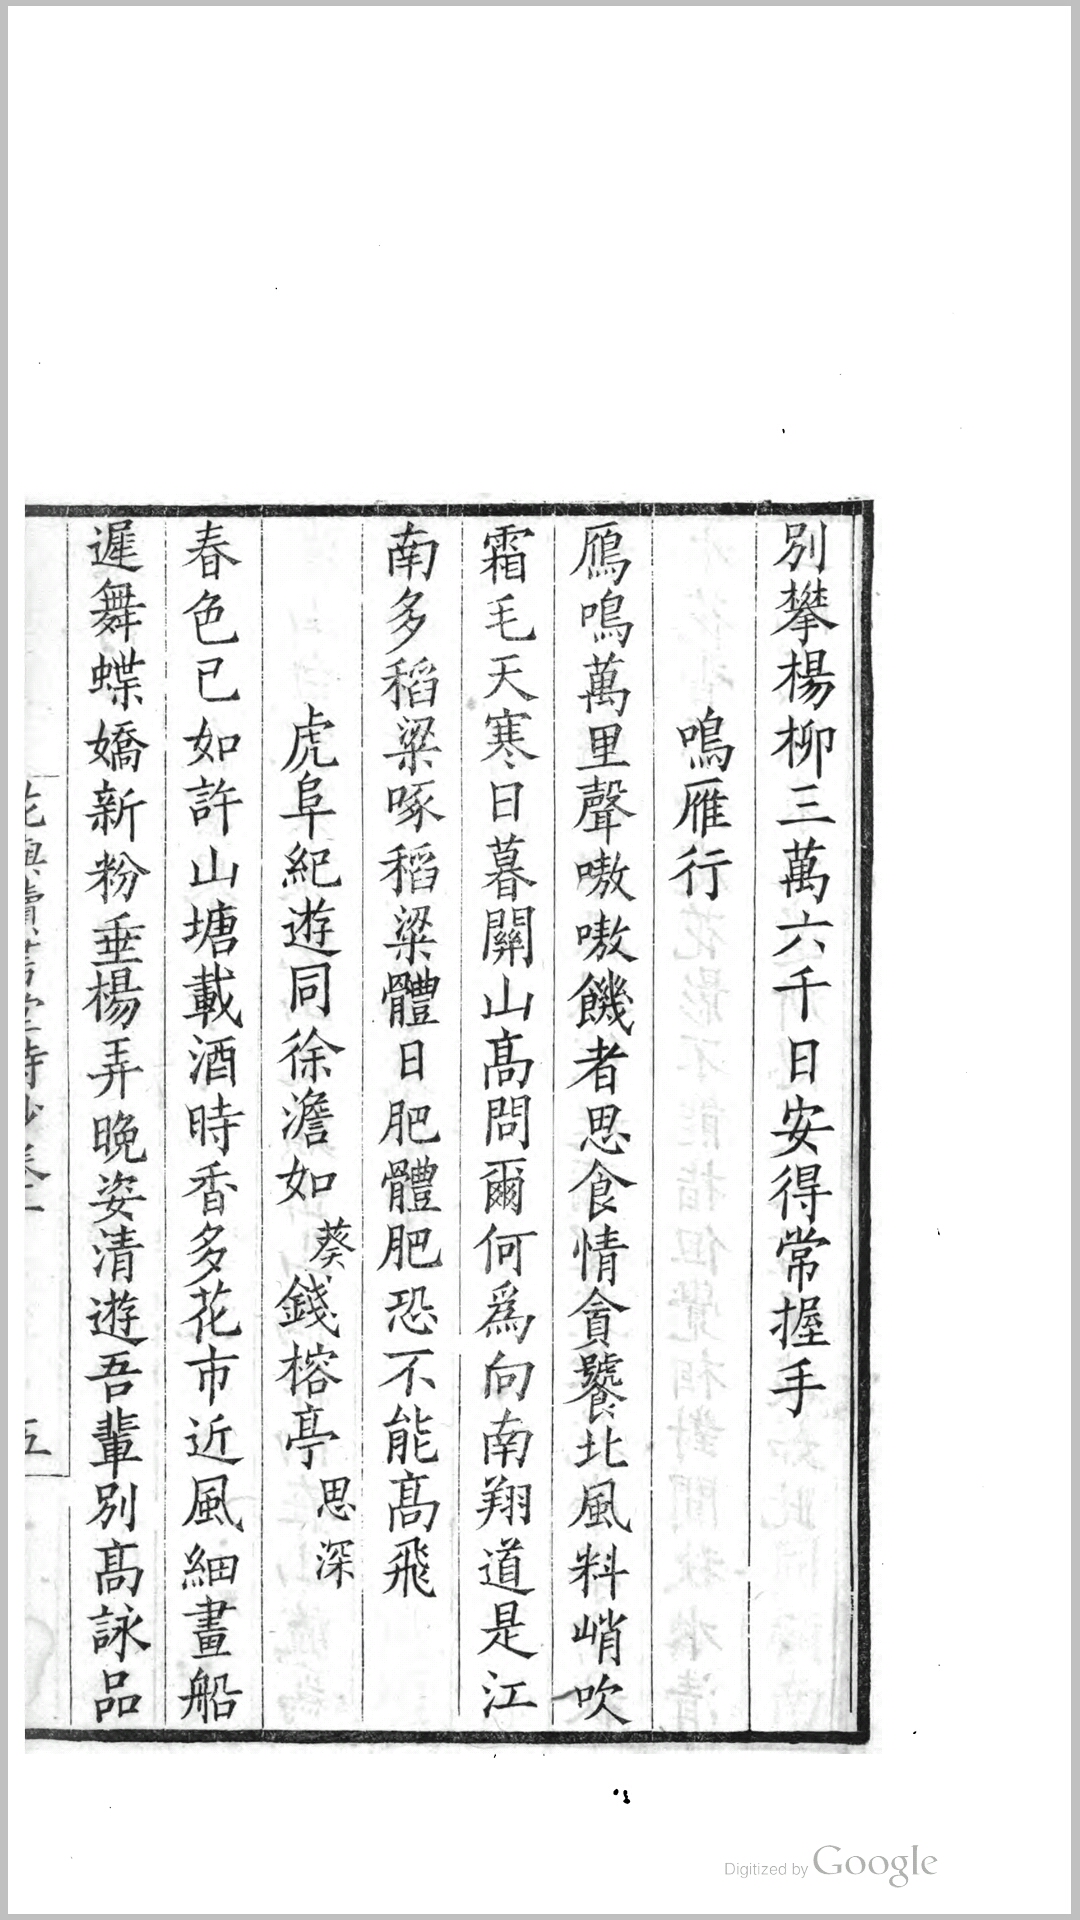 別攀楊柳三萬六千日安得常握手
鳴雁行
鴈鳴萬里聲嗷嗷饑者思食情貪饕北風料峭吹
霜毛天寒日暮關山高問爾何為向南翔道是江
南多稻粱啄稻粱體日肥體肥恐不能高飛
虎阜紀遊同徐澹如葵錢榕亭思深
春色已如許山塘載酒時香多花市近風細畫船
遲舞蝶嬌新粉垂楊弄晚姿清遊吾輩別高詠品
五
Digitized by Google